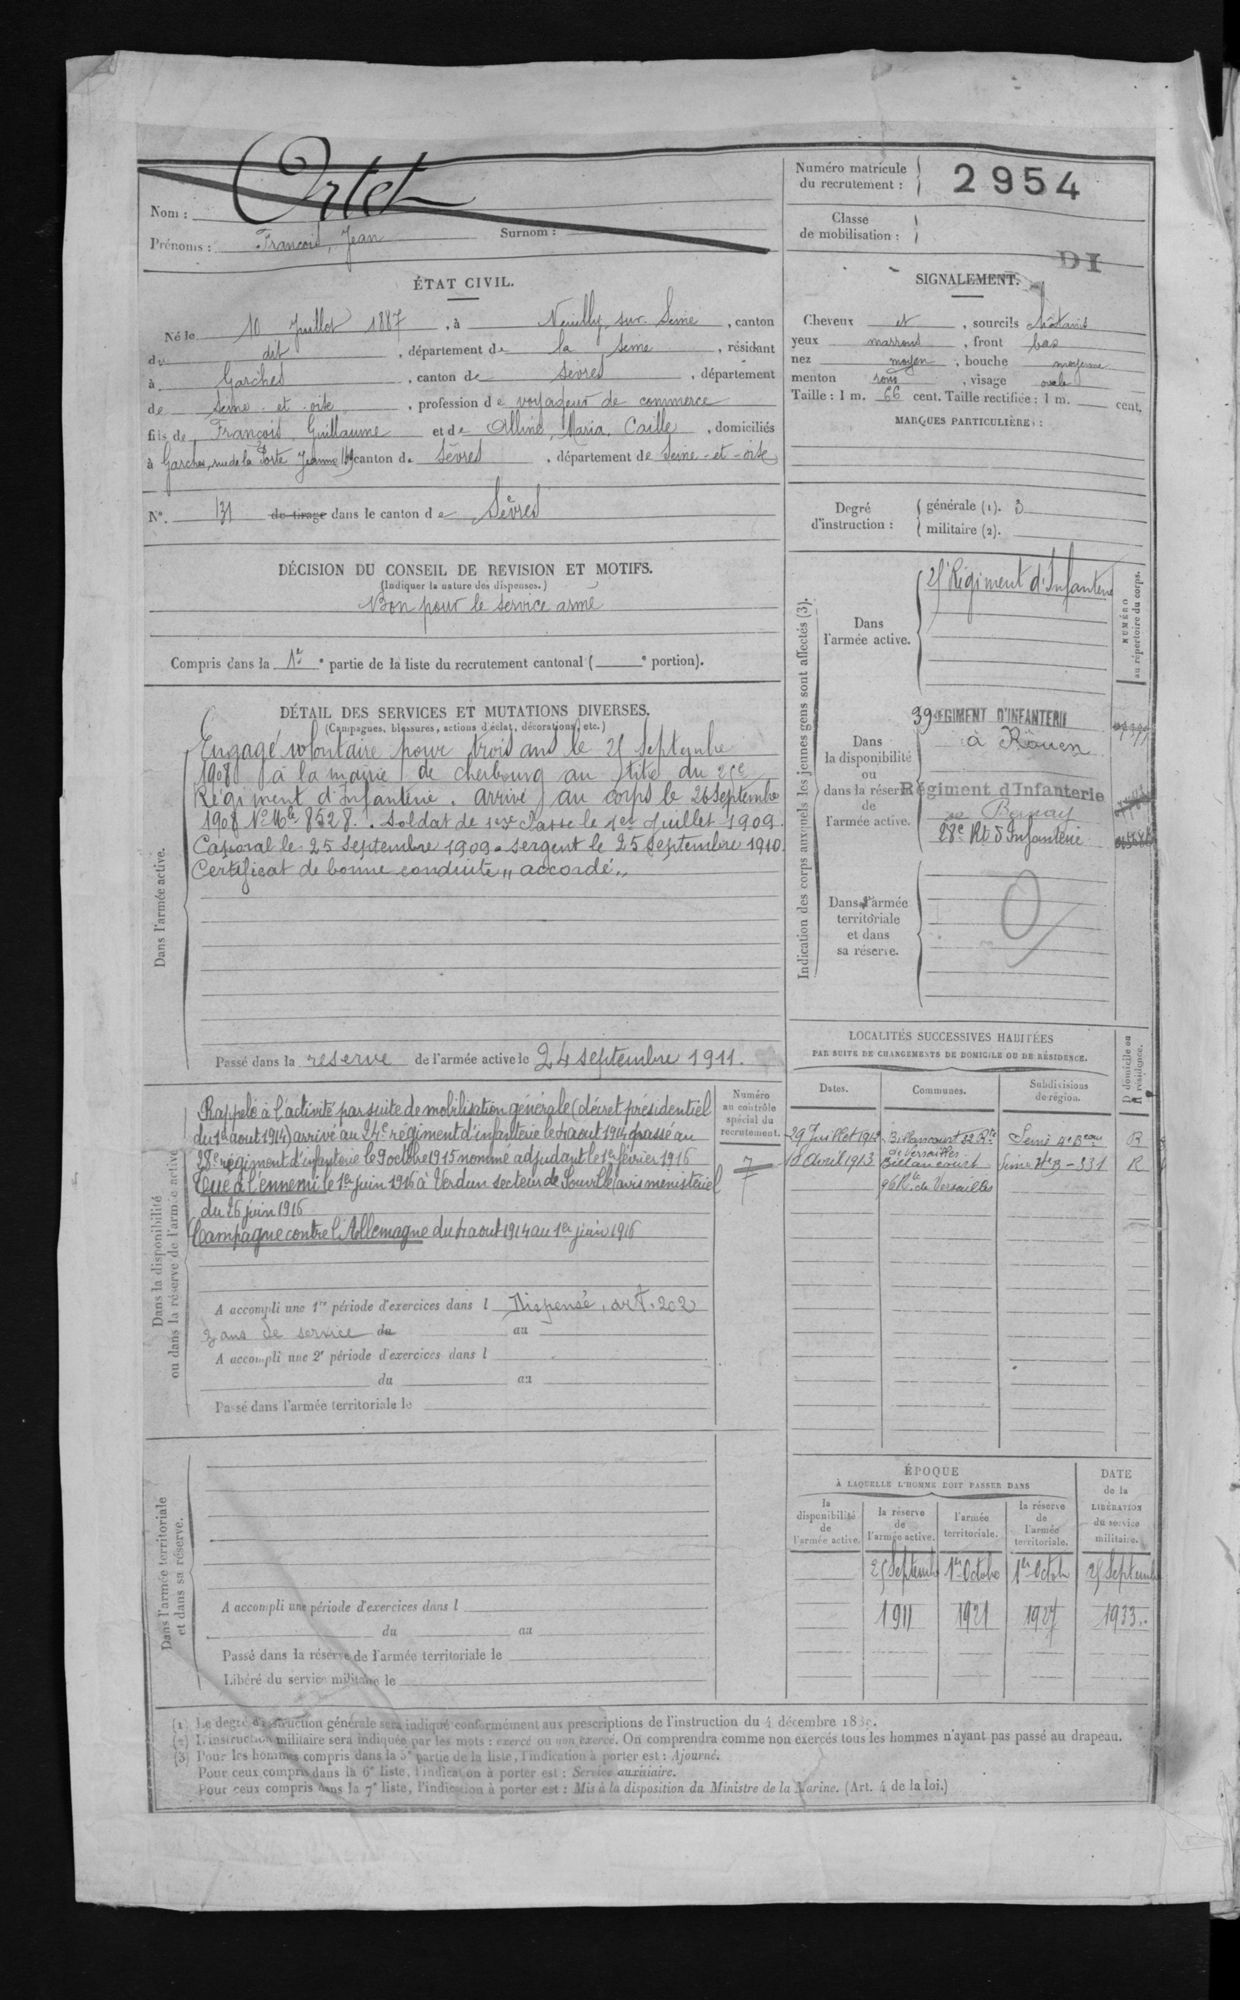 Numéro matricule
du recrutement : 2954
Nom : Ortet
Prénoms : François, Jean Surnom :
Classe
de mobilisation :
DI
ÉTAT CIVIL.
Né le 10 Juillet 1887, à Neuilly-sur-Seine, canton
du dit, département de la Seine, résidant
à Garches, canton de Sèvres, département
de Seine-et-oise, profession de voyageur de commerce
fils de François, Guillaume et de Alline, Maria, Caille, domiciliés
à Garches, rue de la Porte Jeanne canton de Sèvres, département de Seine-et-oise
N°. 131 de tirage dans le canton de Sèvres
SIGNALEMENT.
Cheveux et, sourcils châtains
yeux marrons, front bas
nez moyen, bouche moyenne
menton rond, visage ovale
Taille : 1 m. 66 cent. Taille rectifiée : 1 m. cent.
MARQUES PARTICULIÈRES :
Degré
d'instruction :
générale (1). 3
militaire (2).
DÉCISION DU CONSEIL DE REVISION ET MOTIFS.
(Indiquer la nature des dispenses.)
Bon pour le service armé
Compris dans la 1re partie de la liste du recrutement cantonal ( e portion).
DÉTAIL DES SERVICES ET MUTATIONS DIVERSES.
(Campagnes, blessures, actions d'éclat, décorations, etc.)
Dans l'armée active.
Engagé volontaire pour trois ans le 25 Septembre
1908 à la mairie de Cherbourg au titre du 25e
Régiment d'Infanterie. arrivé au corps le 26 Septembre
1908 N° Mle 8528. Soldat de 1ere Classe le 1er Juillet 1909.
Caporal le 25 Septembre 1909. Sergent le 25 Septembre 1910
Certificat de bonne conduite "accordé"
Passé dans la réserve de l'armée active le 24 septembre 1911.
Indication des corps auxquels les jeunes gens sont affectés (3).
NUMÉRO
au répertoire du corps.
Dans
l'armée active.
25e Régiment d'Infanterie
Dans
la disponibilité
ou
dans la réserve
de
l'armée active.
39 REGIMENT D'INFANTERIE
à Rouen
Régiment d'Infanterie
Bernay
28e Rt d'Infanterie
Dans l'armée
territoriale
et dans
sa réserve.
Dans la disponibilité
ou dans la réserve de l'armée active
Numéro
au contrôle
spécial du
recrutement.
7
Rappelé à l'activité par suite de mobilisation générale (décret présidentiel
du 1er aout 1914) arrivé au 24e régiment d'infanterie le 4 aout 1914 passé au
28e régiment d'infanterie le 9 octobre 1915 nommé adjudant le 1er février 1916
Tué à l'ennemi le 1er juin 1916 à Verdun secteur de Souville (avis ministériel
du 26 juin 1916
Campagne contre l'Allemagne du 4 aout 1914 au 1er juin 1916
A accompli une 1re période d'exercices dans l Dispensé, art. 202
3 ans de service du au
A accompli une 2e période d'exercices dans l
du au
Passé dans l'armée territoriale le
LOCALITÉS SUCCESSIVES HABITÉES
PAR SUITE DE CHANGEMENTS DE DOMICILE OU DE RÉSIDENCE.
D domicile ou
R résidence.
Dates. Communes. Subdivisions
de région.
29 Juillet 1912 Billancourt 82 Rte
de Versailles Seine 4e Beau R
18 Avril 1913 Billancourt
96 Rte de Versailles Seine 4e B - 331 R
Dans l'armée territoriale
et dans sa réserve.
A accompli une période d'exercices dans l
du au
Passé dans la réserve de l'armée territoriale le
Libéré du service militaire le
ÉPOQUE
À LAQUELLE L'HOMME DOIT PASSER DANS
la
disponibilité
de
l'armée active.
la réserve
de
l'armée active.
l'armée
territoriale.
la réserve
de
l'armée
territoriale.
DATE
de la
LIBÉRATION
du service
militaire.
25 Septembre 1er Octobre 1er Octob 25 Septembre
1911 1921 1927 1933.
(1) Le degré d'instruction générale sera indiqué conformément aux prescriptions de l'instruction du 4 décembre 1889.
(2) L'instruction militaire sera indiquée par les mots : exercé ou non exercé. On comprendra comme non exercés tous les hommes n'ayant pas passé au drapeau.
(3) Pour les hommes compris dans la 5e partie de la liste, l'indication à porter est : Ajourné.
Pour ceux compris dans la 6e liste, l'indication à porter est : Service auxiliaire.
Pour ceux compris dans la 7e liste, l'indication à porter est : Mis à la disposition du Ministre de la Marine. (Art. 4 de la loi.)